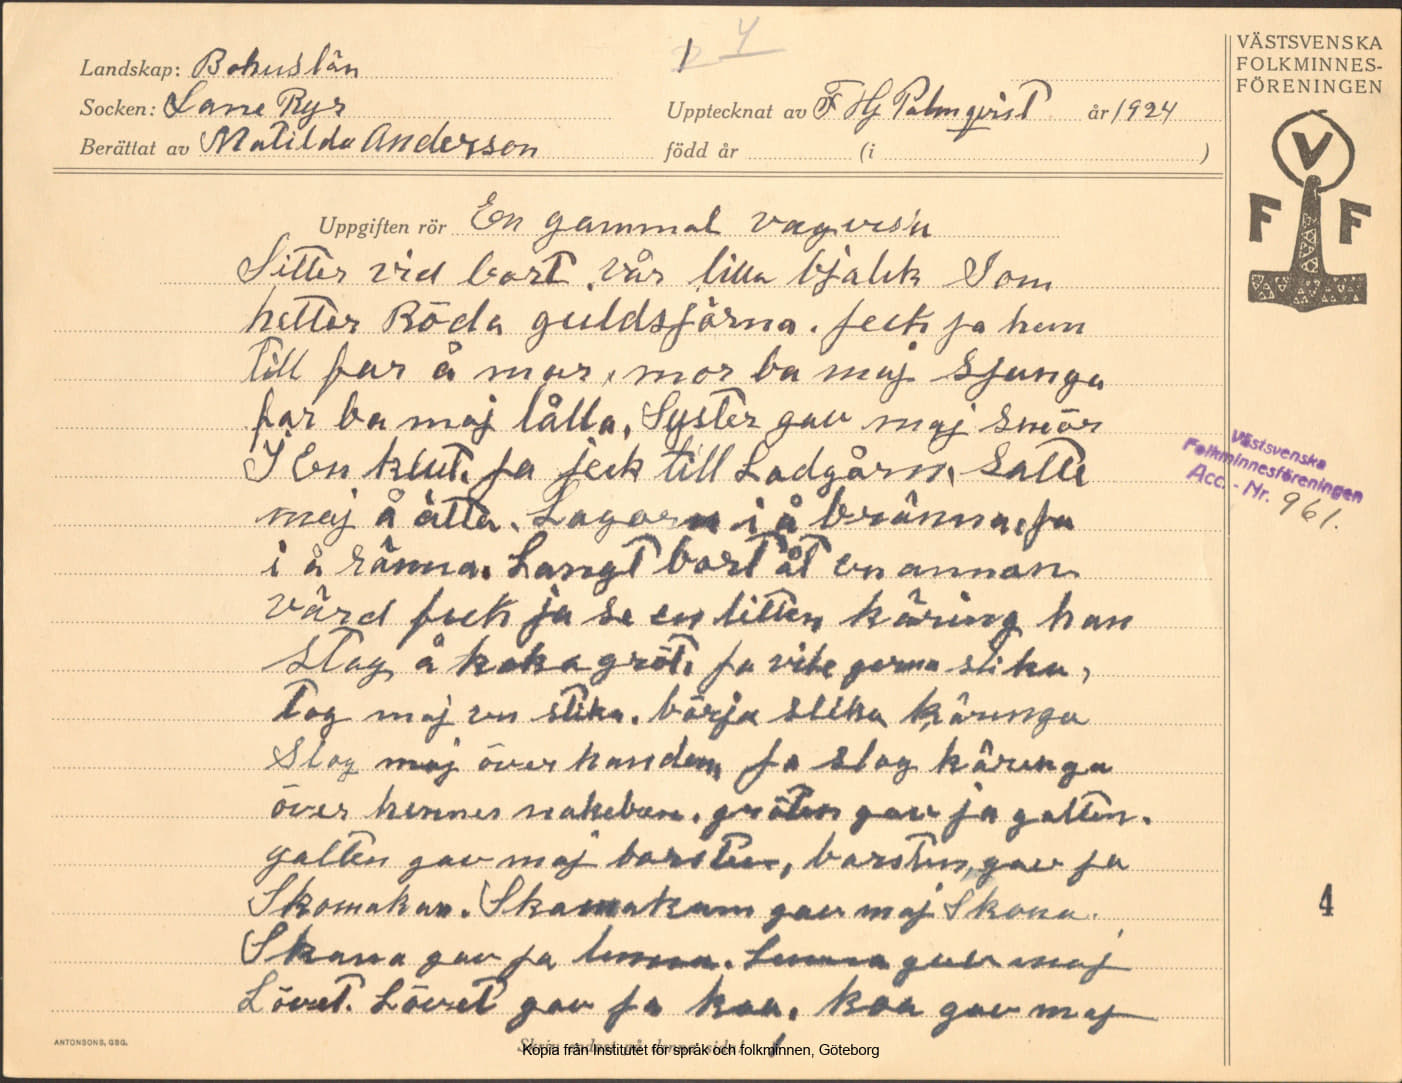 Landskap: Bohuslän
Socken: Lane Ryr
Berättat av Matilda Anderson
Upptecknat av F Hj Palmqvist år 1924
född år (i )
VÄSTSVENSKA
FOLKMINNES-
FÖRENINGEN
V
F F
Uppgiften rör En gammal vagvisa
Sitter vid bort vår lilla bjälek Som
hetter Röda guldsjärna. feck ja han
till far å mor, mor ba maj Sjunga
far ba maj lålla, Syster gav maj smör
I en klut. ja jeck till Ladgårn, Satte
maj å ätta. Lagorn i å bränna, ja
i å ränna. Langt bort åt en annan
värd feck ja se en litten käring han
Stog å koka gröt. ja vile gerna slika,
Tog maj en stika. börja slika käringa
Slog maj över handen, ja slog käringa
över hennes nakeben. gröten gav ja galten.
galten gav maj borsten, borsten, gav ja
Skomakan. Skomakarn gav maj Skona.
Skona gav ja lunna. Lunna gav maj
Lövet. Lövet gav ja koa, koa gav maj
Västsvenska
Folkminnesföreningen
Acc. - Nr. 961.
4
ANTONSONS, GBG.
Skriv endast på denna sida!
Kopia från Institutet för språk och folkminnen, Göteborg